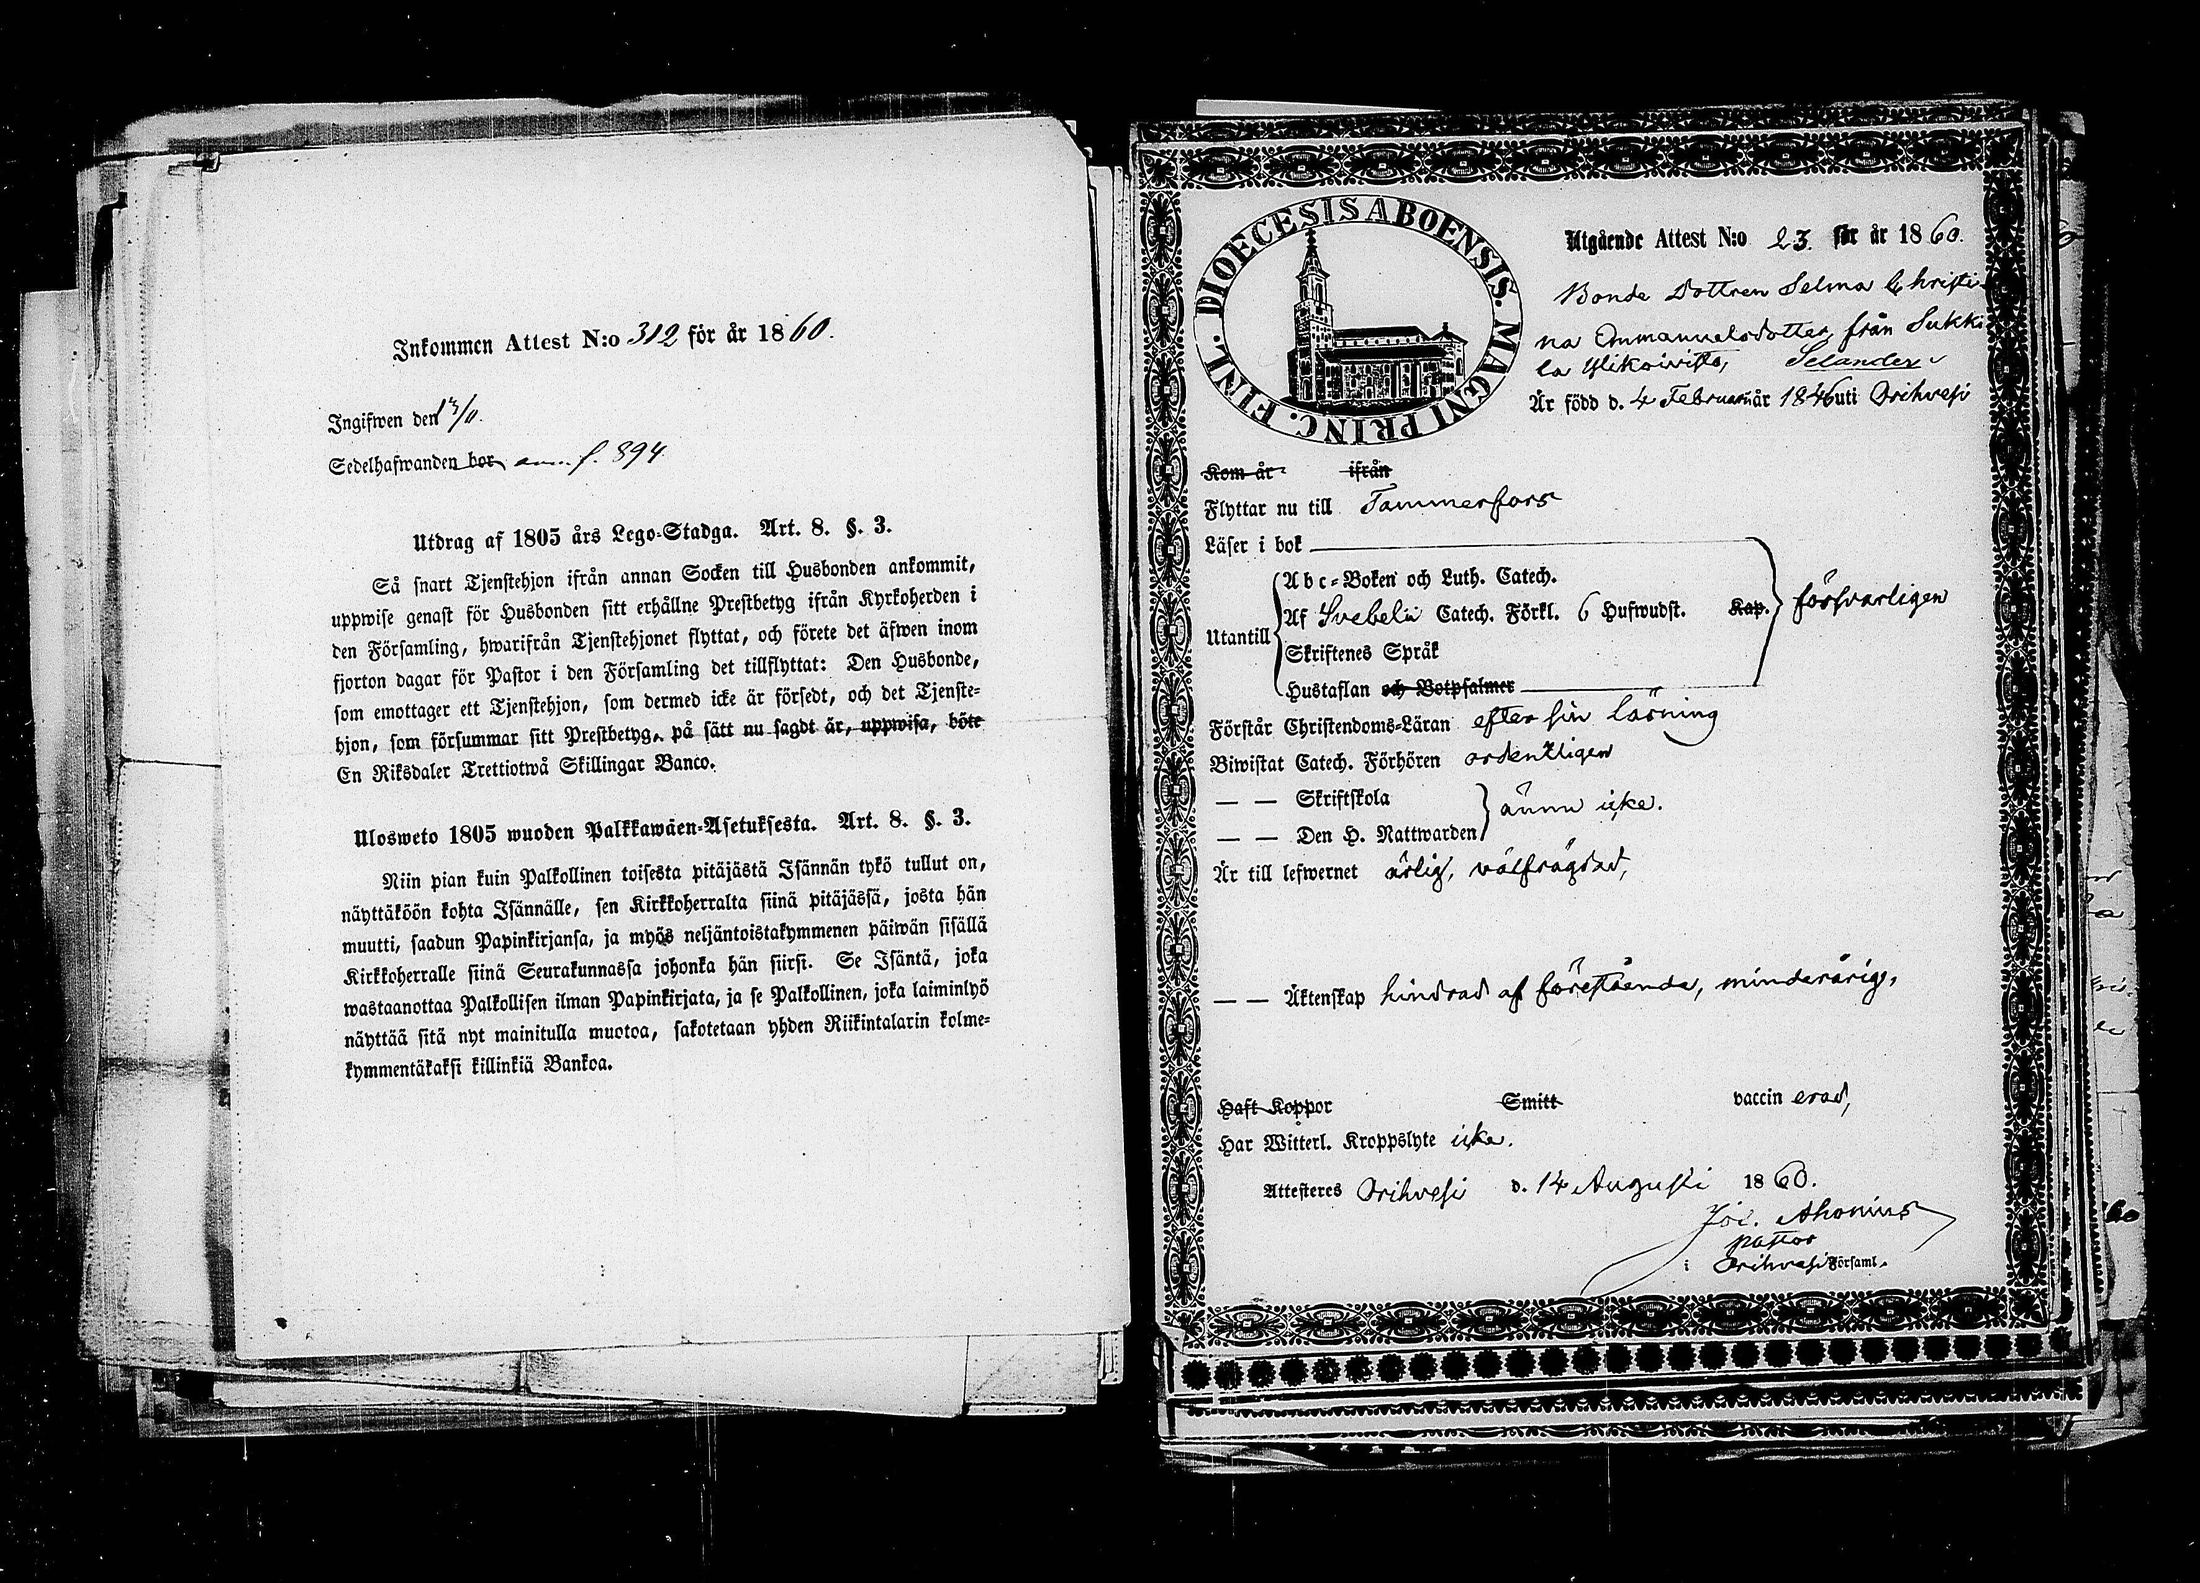 Inkommen Attest N:o 312 för år 1860.
Ingifwen den
Sedelhafwanden bor ann. f. 894
Utdrag af 1805 års Lego-Stadga. Art. 8. §. 3.
Så snart Tjenstehjon ifrån annan Socken till Husbonden ankommit,
uppwise genast för Husbonden sitt erhållne Prestbetyg ifrån Kyrkoherden i
den Församling, hwarifrån Tjenstehjonet flyttat, och förete det äfwen inom
fjorton dagar för Pastor i den Församling det tillflyttat: Den Husbonde,
som emottager ett Tjenstehjon, som dermed icke är försedt, och det Tjenste-
hjon, som försummar sitt Prestbetyg, på sätt nu sagdt är, uppwisa, böte
En Riksdaler Trettiotwå Skillingar Banco.
Ulosweto 1805 wuoden Palkkawäen-Asetuksesta. Art. 8. §. 3.
Niin pian kuin Palkollinen toisesta pitäjästä Isännän tykö tullut on,
näyttäköön kohta Isännälle, sen Kirkkoherralta siinä pitäjässä, josta hän
muutti, saadun Papinkirjansa, ja myös neljäntoistakymmenen päiwän sisällä
Kirkkoherralle siinä Seurakunnassa johonka hän siirsi. Se Isäntä, joka
wastaanottaa Palkollisen ilman Papinkirjata, ja se Palkollinen, joka laiminlyö
näyttää sitä nyt mainitulla muotoa, sakotetaan yhden Riikintalarin kolme-
kymmentäkaksi killinkiä Bankoa.
DIOECESIS ABOENSIS. MAGNI PRINC. FINL.
Utgående Attest N:o 23. för år 1860.
Bonde Dottren Selma Christi-
na Emmanuelsdotter från Sukki
la Ylikoivisto, Selander
Är född d. 4 Februari år 1846 uti Orihvesi
Kom år ifrån
Flyttar nu till Tammerfors
Läser i bok
Abc-Boken och Luth. Catech.
Utantill Af Svebelii Catech. Förkl. 6 Hufwudst. Kap. försvarligen
Skriftenes Språk
Hustaflan och Botpsalmer
Förstår Christendoms-Läran efter sin läsning
Biwistat Catech. Förhören ordentligen
— — Skriftskola
ännu icke.
— — Den H. Nattwarden
Är till lefwernet ärlig, välfrägdad,
— — Äktenskap hindrad af förestående, minderårig,
Haft Koppor Smitt vaccin erad,
Har Witterl. Kroppslyte icke.
Attesteres Orihvesi d. 14 Augusti 1860.
Joi. Ahonius
pastor
i Orihvesi Församl.